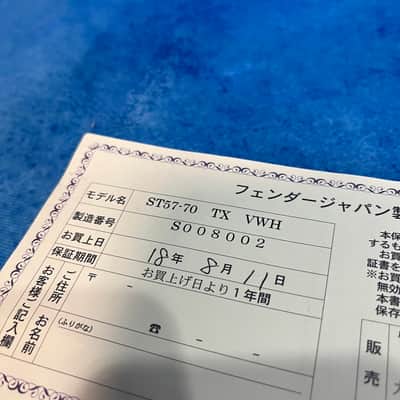 フェンダージャパン製
モデル名 ST57-70 TX VWH
製造番号 S008002
お買上日 18年 8月 11日
保証期間 お買上げ日より1年間
お客様ご記入欄
ご住所 〒 −
☎ − −
(ふりがな)
お名前
本保
するも
お買
証書を
※お買
無効
本書
保存
販売